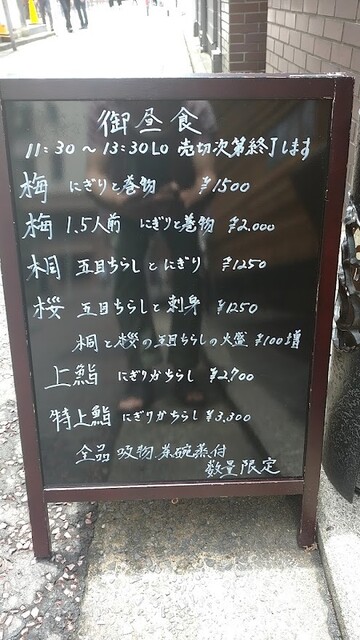 御昼食
11:30～13:30LO 売切次第終了します
梅 にぎりと巻物 ¥1500
梅 1.5人前 にぎりと巻物 ¥2,000
桐 五目ちらしとにぎり ¥1250
桜 五目ちらしと刺身 ¥1250
桐と桜の五目ちらしの大盛 ¥100増
上鮨 にぎりかちらし ¥2,700
特上鮨 にぎりかちらし ¥3,300
全品 吸物 茶碗蒸付
数量限定